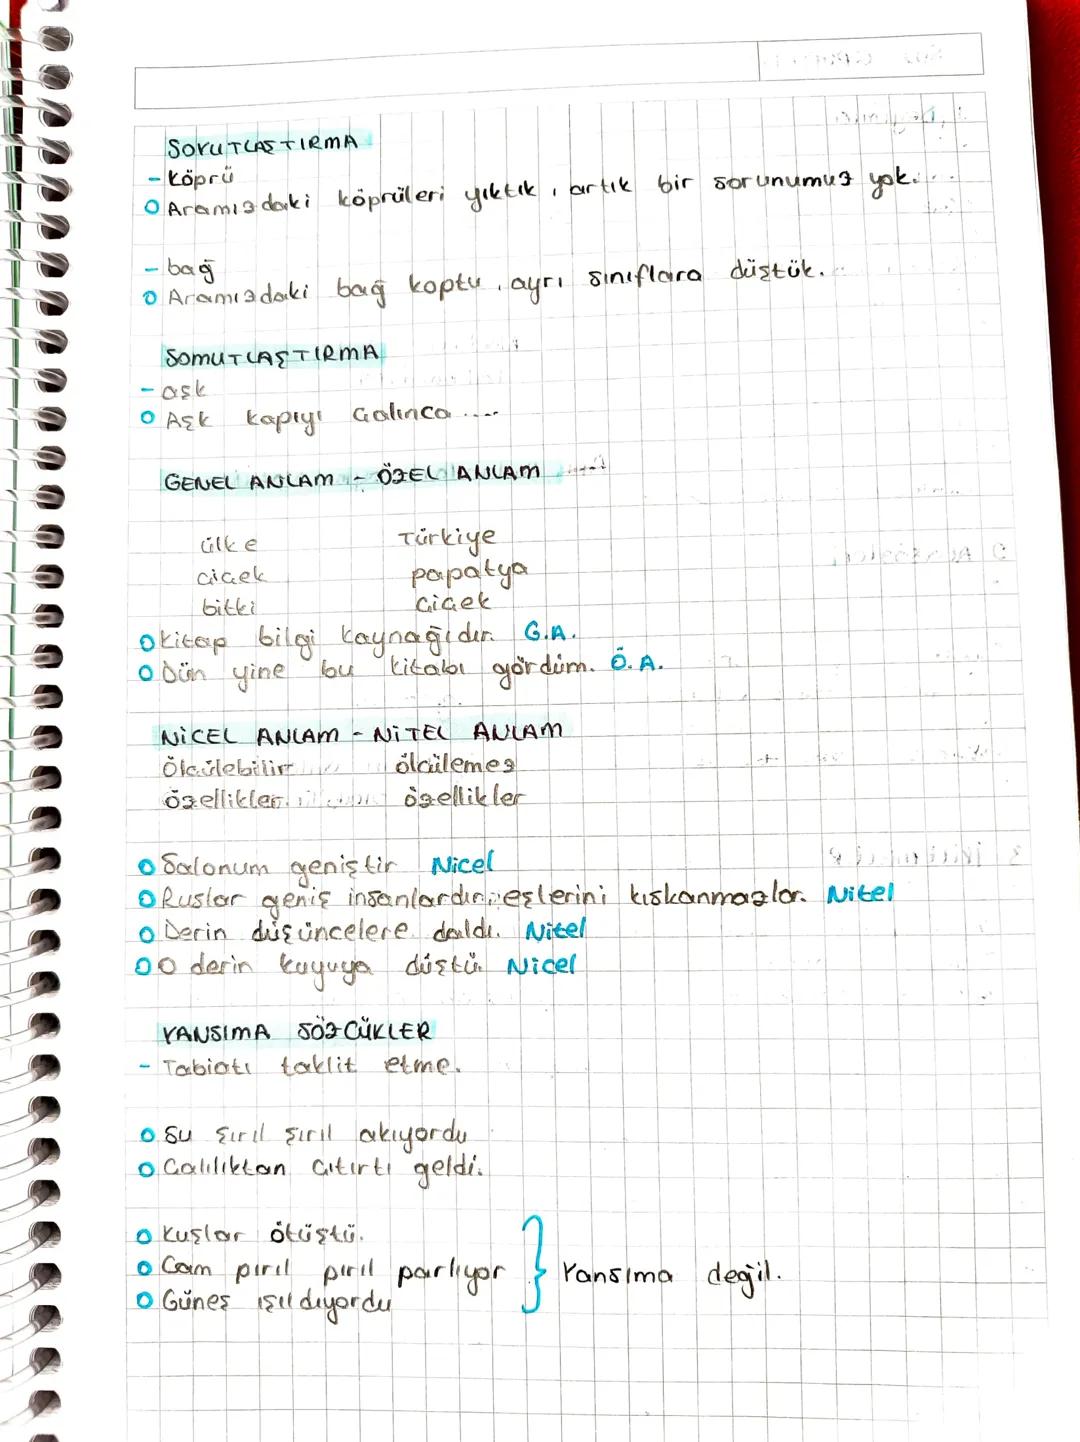 SOYUTLAŞTIRMA
- köprü
o Aramızdaki köprüleri yıktık, artık bir sorunumuz yok.
- bağ
o Aramızdaki bağ koptu, ayrı sınıflara düştük.
SOMUTLAŞTIRMA
- aşk
o Aşk kapıyı çalınca ....
GENEL ANLAM - ÖZEL ANLAM
ülke Türkiye
çiçek papatya
bitki çiçek
o kitap bilgi kaynağıdır. G.A.
o Dün yine bu kitabı gördüm. Ö.A.
NİCEL ANLAM - NİTEL ANLAM
Ölçülebilir ölçülemez
özellikler. özellikler
o Salonum geniştir Nicel
o Ruslar geniş insanlardır, eşlerini kıskanmazlar. Nitel
o Derin düşüncelere daldı. Nitel
o O derin kuyuya düştü. Nicel
YANSIMA SÖZCÜKLER
- Tabiatı taklit etme.
o Su şırıl şırıl akıyordu
o Çalılıktan çıtırtı geldi.
o Kuşlar ötüştü.
o Cam pırıl pırıl parlıyor } Yansıma değil.
o Güneş ışıldıyordu